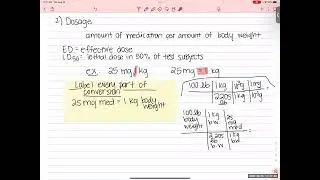 2) Dosage
amount of medication per amount of body weight
ED = effective dose
LD50 = lethal dose in 50% of test subjects
ex. 25 mg/kg 25 mg = 1 kg
Label every part of conversion!
25 mg med = 1 kg body weight
100 lb | 1 kg
2.205 lb
100 lb body weight | 1 kg b.w. | 25 mg med
2.205 lb b.w. | 1 kg b.w.